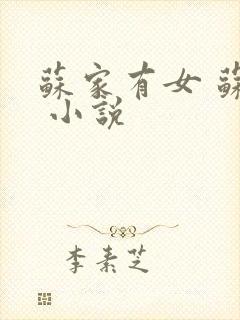 蘇家有女 蘇
小說
李素芝